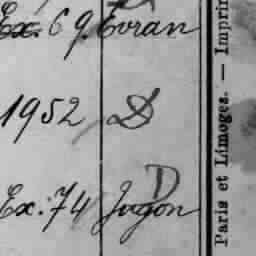 Ex. 69. Evran
1952 D
D
Ex: 74 Jugon
Paris et Limoges. — Imprim